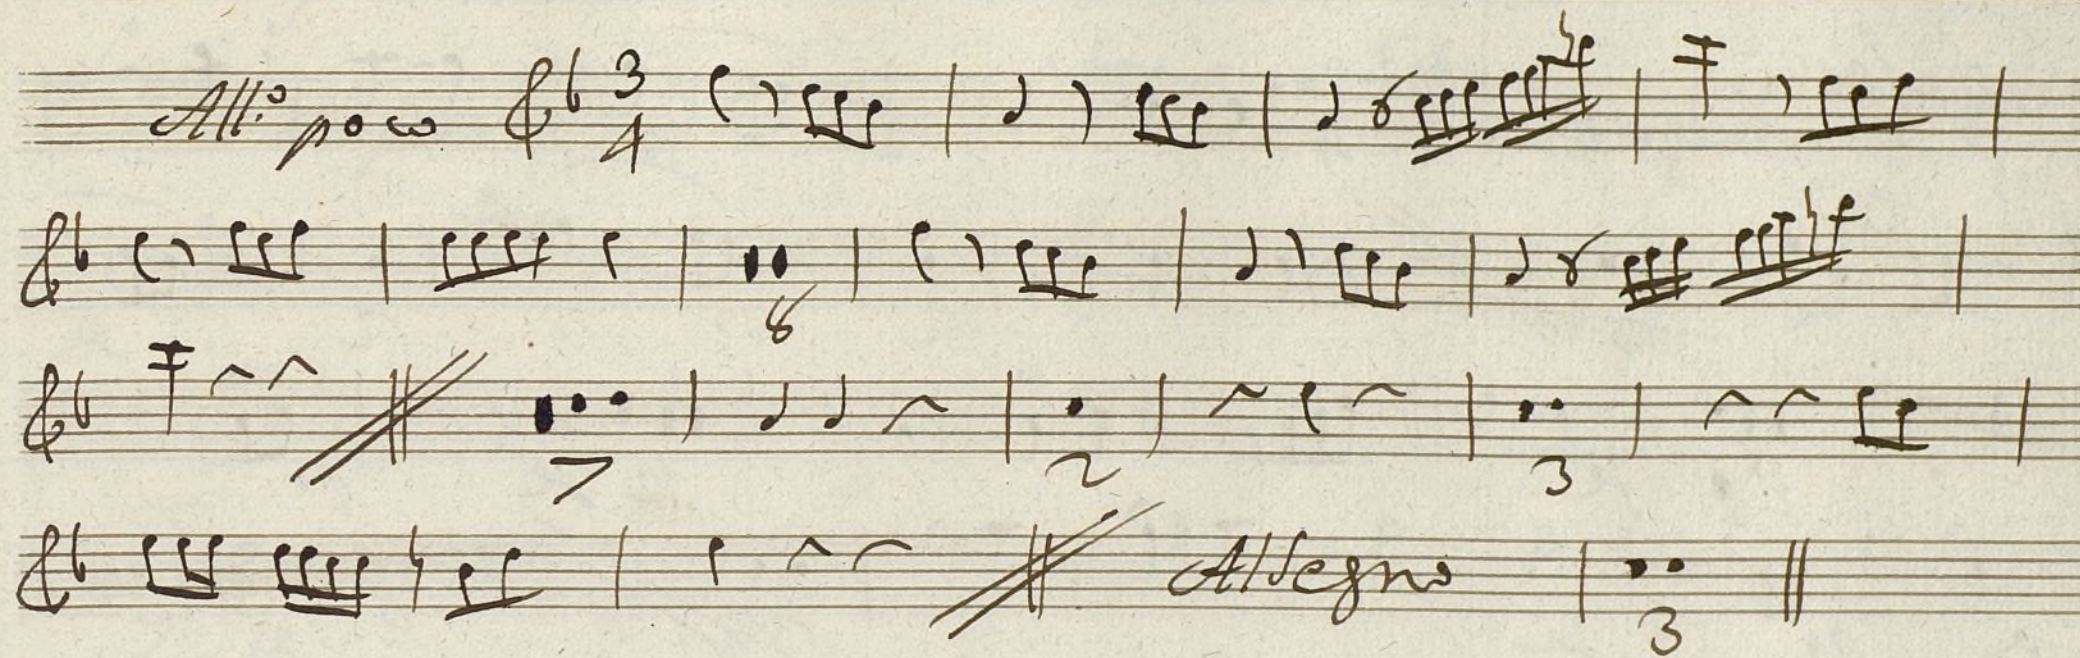 All.º poco 3 4
8
7 2 3
Al Segno
3